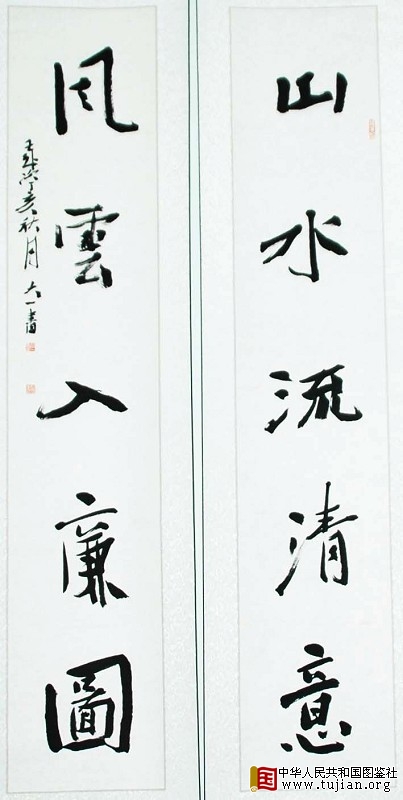 山水流清意
風雲入廉圖
丁亥秋月 大一書
中华人民共和国图鉴社
www.tujian.org